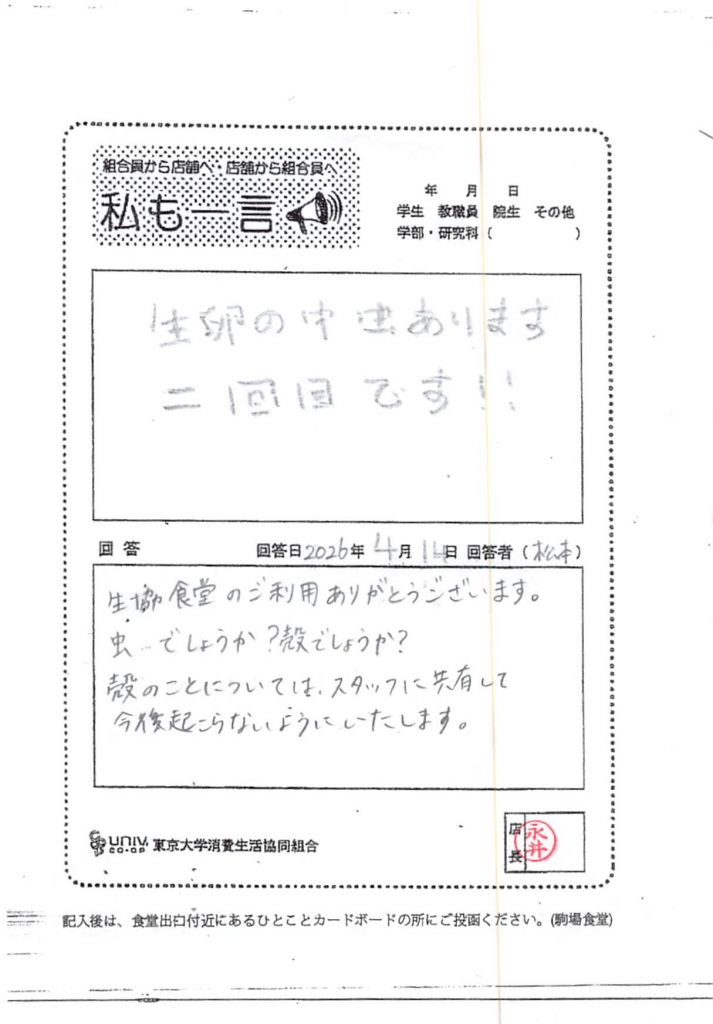 組合員から店舗へ・店舗から組合員へ
私も一言
年 月 日
学生 教職員 院生 その他
学部・研究科( )
生卵の中虫あります
二回目です!!
回答 回答日2026年4月14日 回答者(松本)
生協食堂のご利用ありがとうございます。
虫…でしょうか?殻でしょうか?
殻のことについては、スタッフに共有して
今後起こらないようにいたします。
UNIV. CO-OP 東京大学消費生活協同組合
店長 永井
記入後は、食堂出口付近にあるひとことカードボードの所にご投函ください。(駒場食堂)